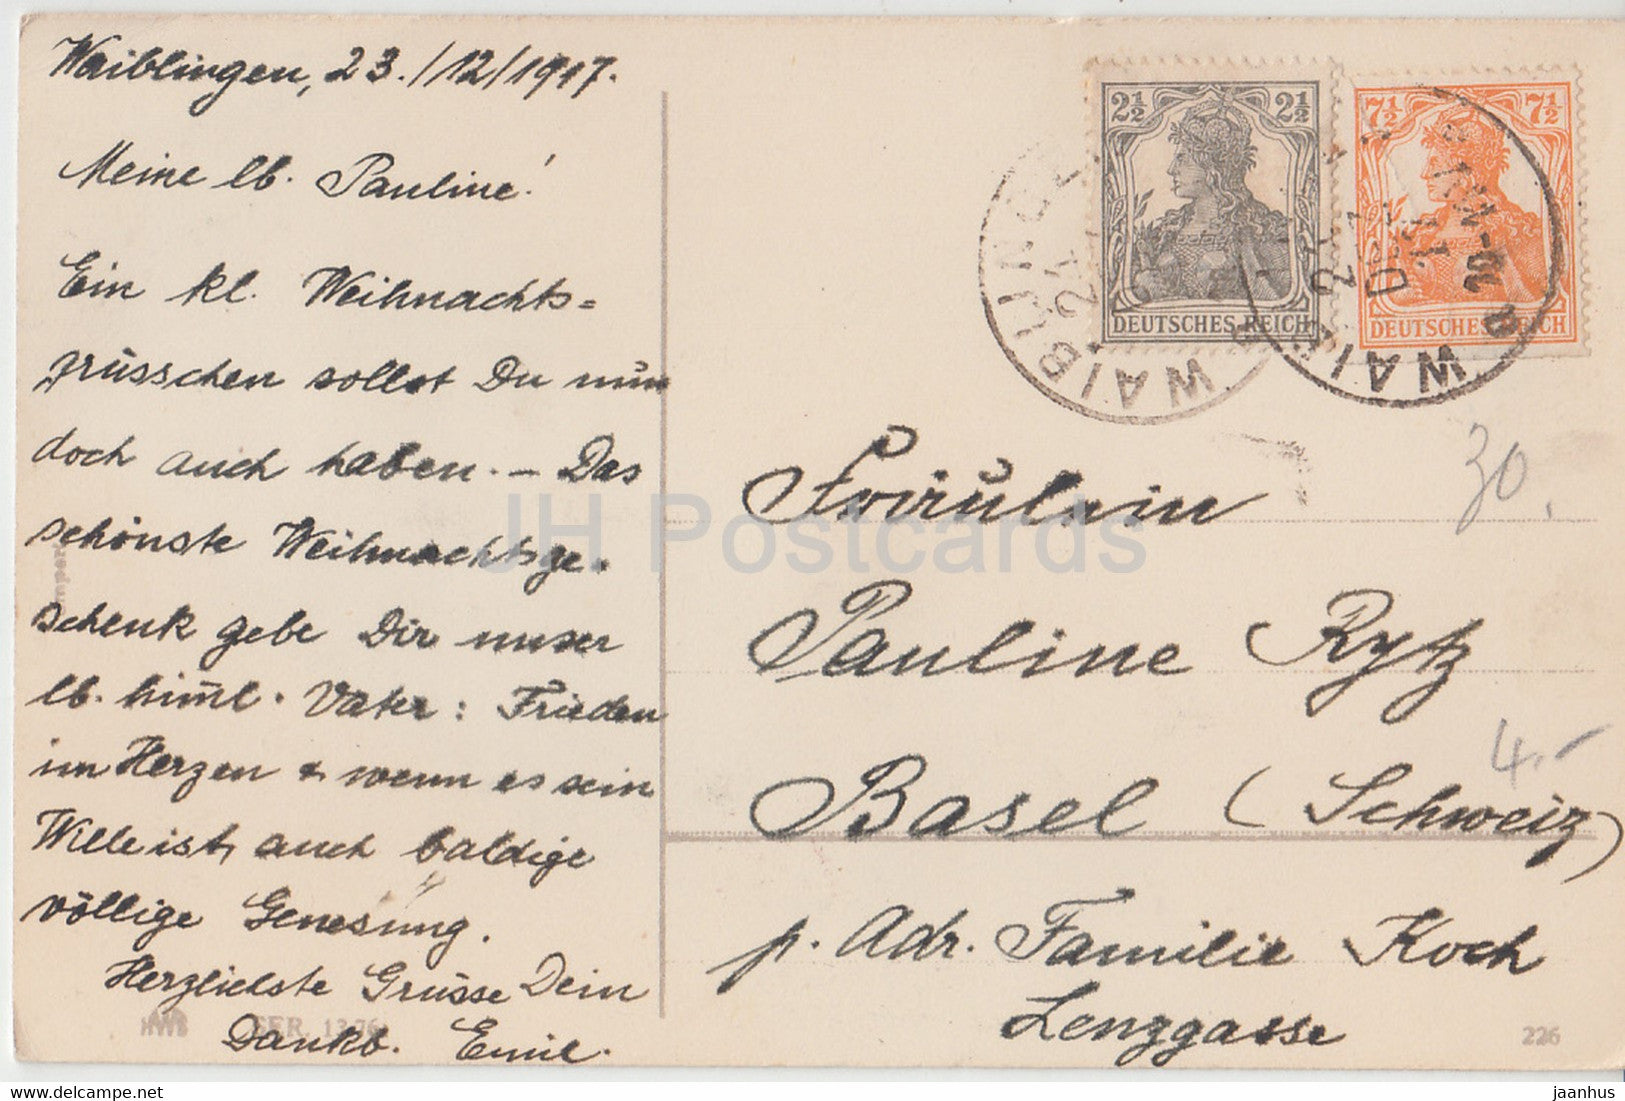 Waiblingen, 23./12/1917.
Meine lb. Pauline!
Ein kl. Weihnachts=
grüsschen sollst Du nun
doch auch haben. – Das
schönste Weihnachtsge.
schenk gebe Dir unser
lb. himml. Vater: Frieden
im Herzen & wenn es sein
Wille ist, auch baldige
völlige Genesung.
Herzlichste Grüsse Dein
Dankb. Emil.
HWB SER. 1376
2½ 2½
DEUTSCHES REICH
7½ 7½
DEUTSCHES REICH
WAIBLINGEN
24 DEZ 17
30.
Fräulein
Pauline Rytz
Basel (Schweiz)
4.-
p. Adr. Familie Koch
Lenzgasse
226
JH Postcards
https://www.delcampe.net
jaanhus